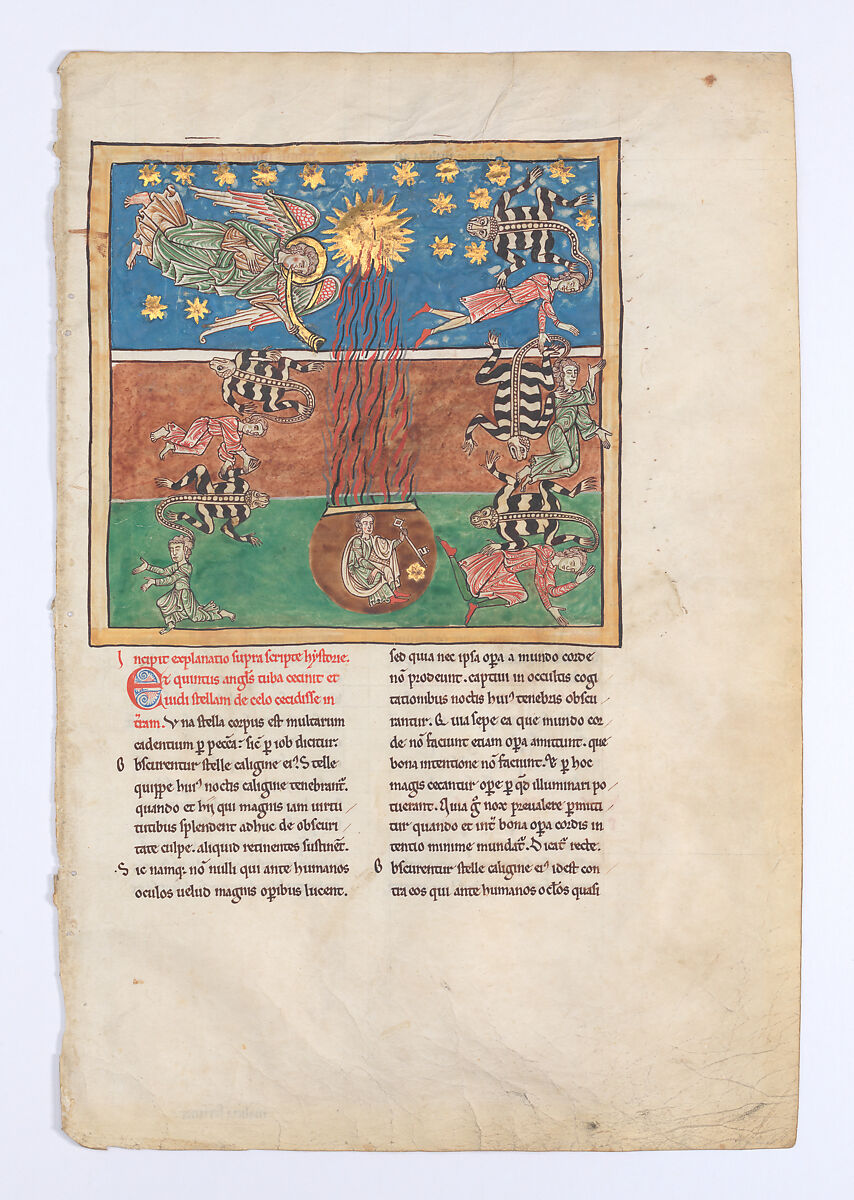 Incipit explanatio supra scripte hystorie.
Et quintus angl̃s tuba cecinit et
uidi stellam de celo cecidisse in
tr̃am. Vna stella corpus est multarum
cadentium ꝑ pecc̃a: sic̃ ꝑ iob dicitur.
Obscurentur stelle caligine ei᾽. Stelle
quippe hui᾽ noctis caligine tenebrant᾽.
quando et hij qui magnis iam uirtu
tutibus splendent adhuc de obscuri
tate culpe. aliquid retinentes sustinẽt.
Sic namq; nõ nulli qui ante humanos
oculos uelud magnis oꝑibus lucent.
sed quia nec ipsa oꝑa a mundo corde
nõ prodeunt. captiui in occultis cogi
tationibus noctis hui᾽ tenebris obscu
rantur. & uia sepe ea que mundo cor
de nõ faciunt etiam oꝑa amittunt. que
bona intentione nõ faciunt. & ꝑ hoc
magis cecantur oꝑe ꝑ qd̃ illuminari po
tuerant. Quia g̊ nox preualere ꝑmitti
tur quando et int̃ bona oꝑa cordis in
tentio minime mundat᾽. Dicat᾽ recte.
Obscurentur stelle caligine ei᾽ idest con
tra eos qui ante humanos oc̃los quasi